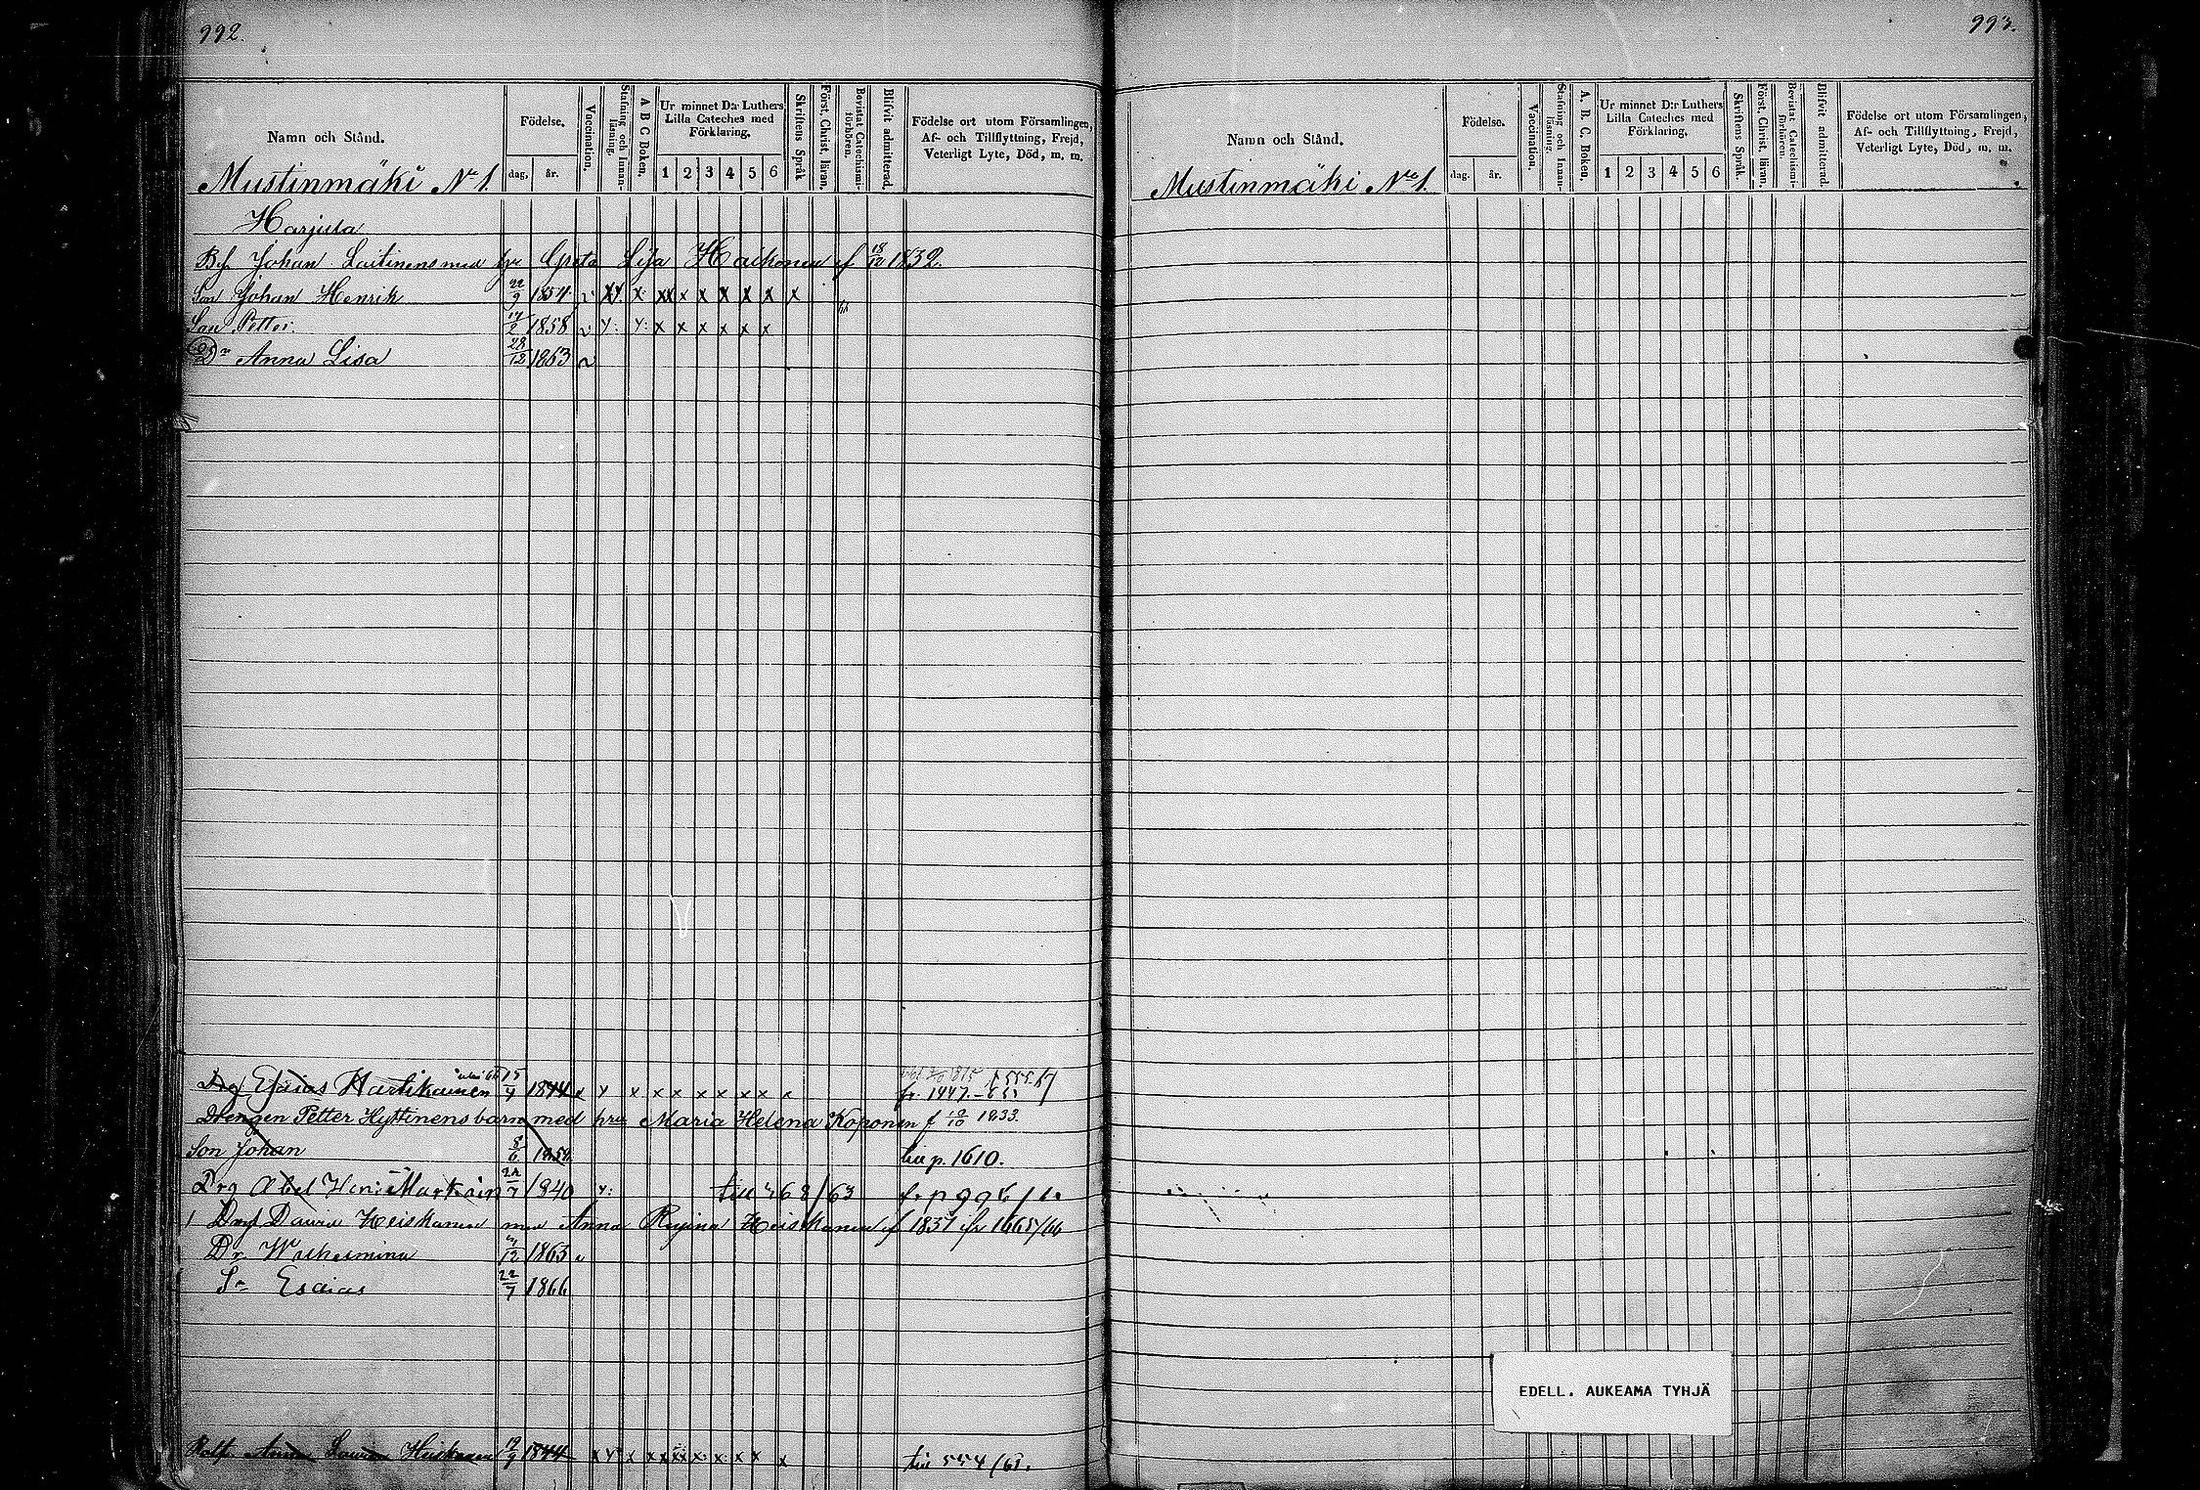 992.
Namn och Stånd.
Födelse.
dag, år.
Vaccination.
Stafning och Innanläsning.
A B C Boken.
Ur minnet D:r Luthers Lilla Cateches med Förklaring.
1 2 3 4 5 6
Skriftens Språk
Först. Christ. läran.
Bevistat Catechismiförhören.
Blifvit admitterad.
Födelse ort utom Församlingen,
Af- och Tillflyttning, Frejd,
Veterligt Lyte, Död, m. m.
Mustinmäki No 1.
Harjula
Johan Laitinens med Greta Lisa Haikonen f 18/10 1832.
Son Johan Henrik 22/9 1854 v xy x xx x x x x x x
Son Petter 17/2 1858 v y: y: x x x x x x
Dr Anna Lisa 28/12 1863 v
Drg Esaias Hartikainen 15/4 1844 x y x x x x x x x x fr. 1447.
Drengen Petter Hyttinens barn med hru Maria Helena Koponen f 10/10 1833.
Son Johan 8/6 tu p. 1610.
Drg Abel 24/7 1840 y: till 468/63
David Heiskanen med Anna Regina Heiskanen f 1837 fr 1665/66
Dr Wilhelmina 1863
Sn Esaias 22/7 1866
Heiskanen 19/9 1844 till 554/65.
993.
Namn och Stånd.
Födelse.
dag. år.
Vaccination.
Stafning och Innanläsning.
A. B. C. Boken.
Ur minnet D:r Luthers Lilla Cateches med Förklaring.
1 2 3 4 5 6
Skriftens Språk.
Först. Christ. läran.
Bevistat Catechismiförhören.
Blifvit admitterad.
Födelse ort utom Församlingen,
Af- och Tillflyttning, Frejd,
Veterligt Lyte, Död, m. m.
Mustinmäki No 1.
EDELL. AUKEAMA TYHJÄ